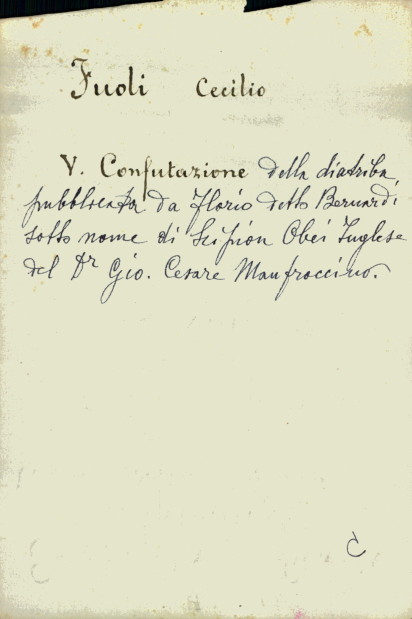 Fuoli Cecilio
V. Confutazione della diatriba
pubblicata da Florio detto Bernardi
sotto nome di Scipion Obei Inglese
del Dr Gio. Cesare Manfroccino.
C